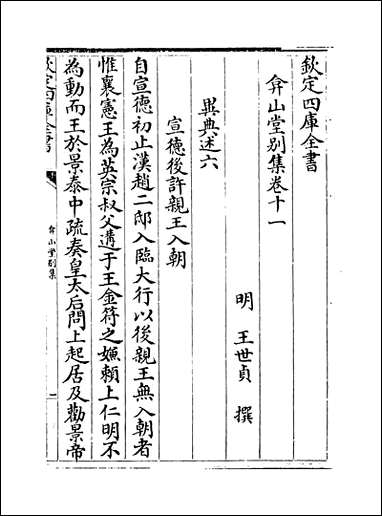 欽定四庫全書
弇山堂別集卷十一
明 王世貞 撰
異典述六
宣德後許親王入朝
自宣德初止漢趙二邸入臨大行以後親王無入朝者
惟襄憲王為英宗叔父遘于王金符之嫌賴上仁明不
為動而王於景泰中疏奏皇太后問上起居及勸景帝
弇山堂別集